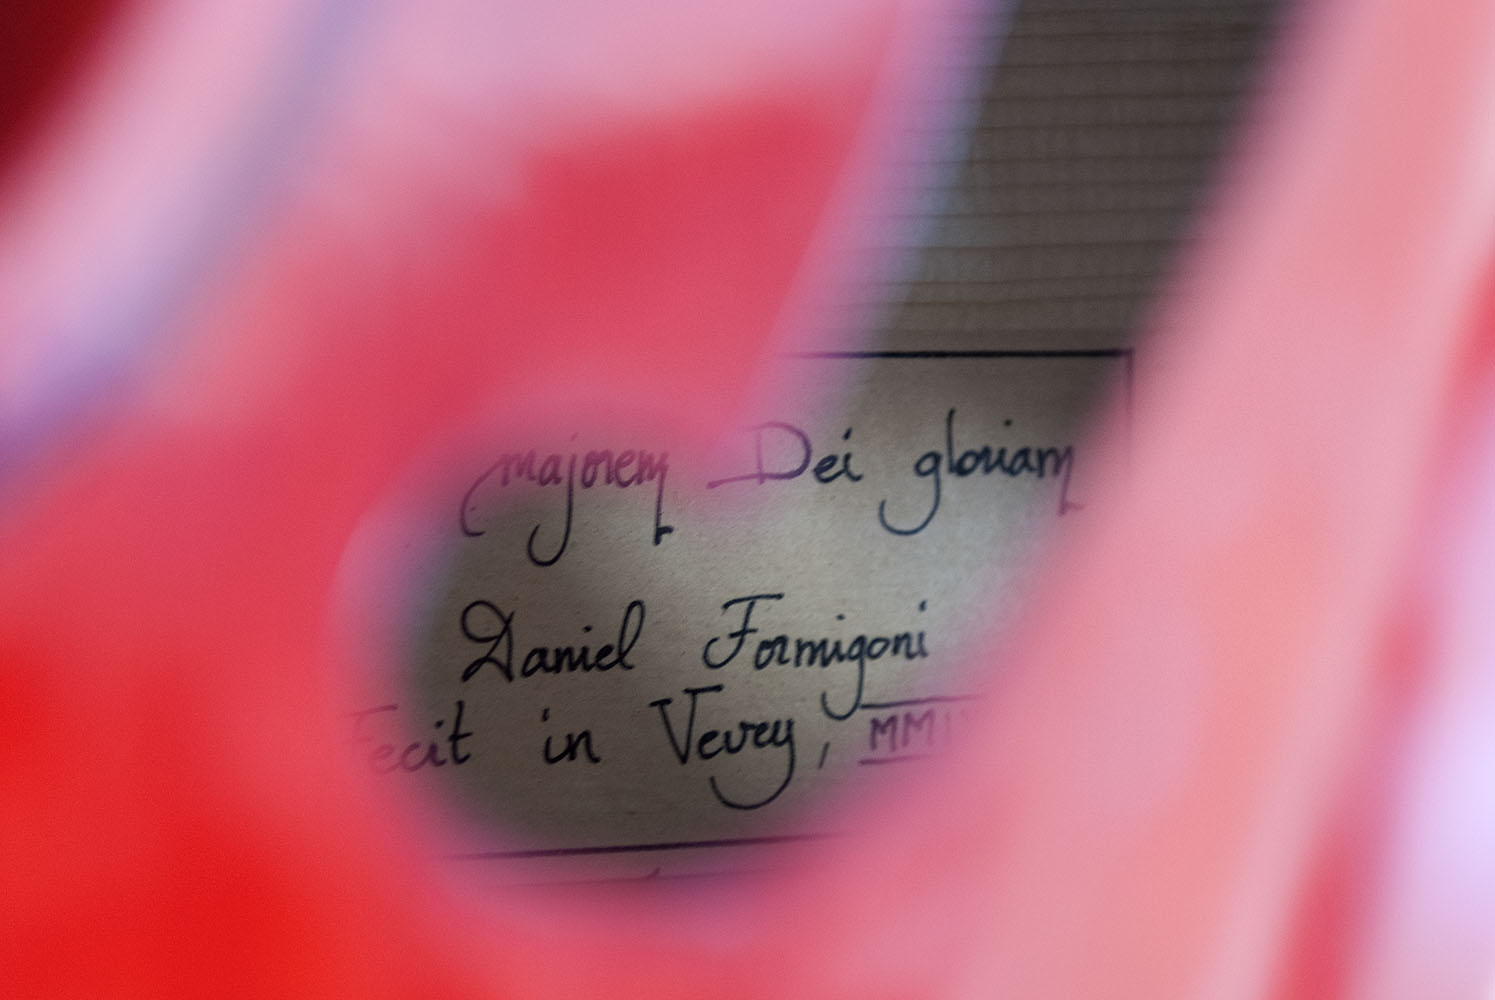 majorem Dei gloriam
Daniel Formigoni
Fecit in Vevey,